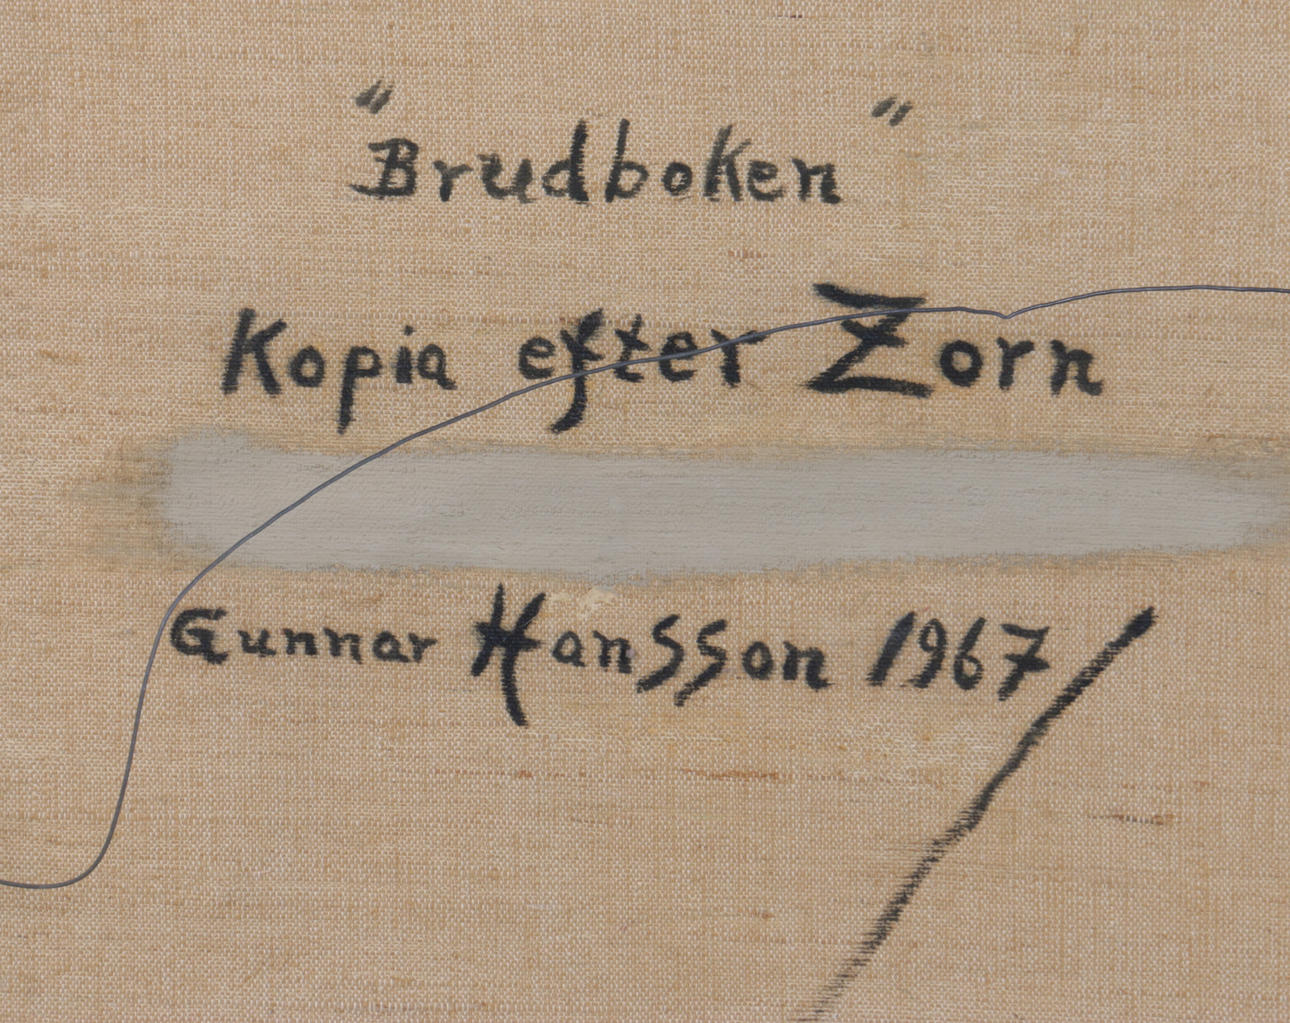 "Brudboken"
Kopia efter Zorn
Gunnar Hansson 1967